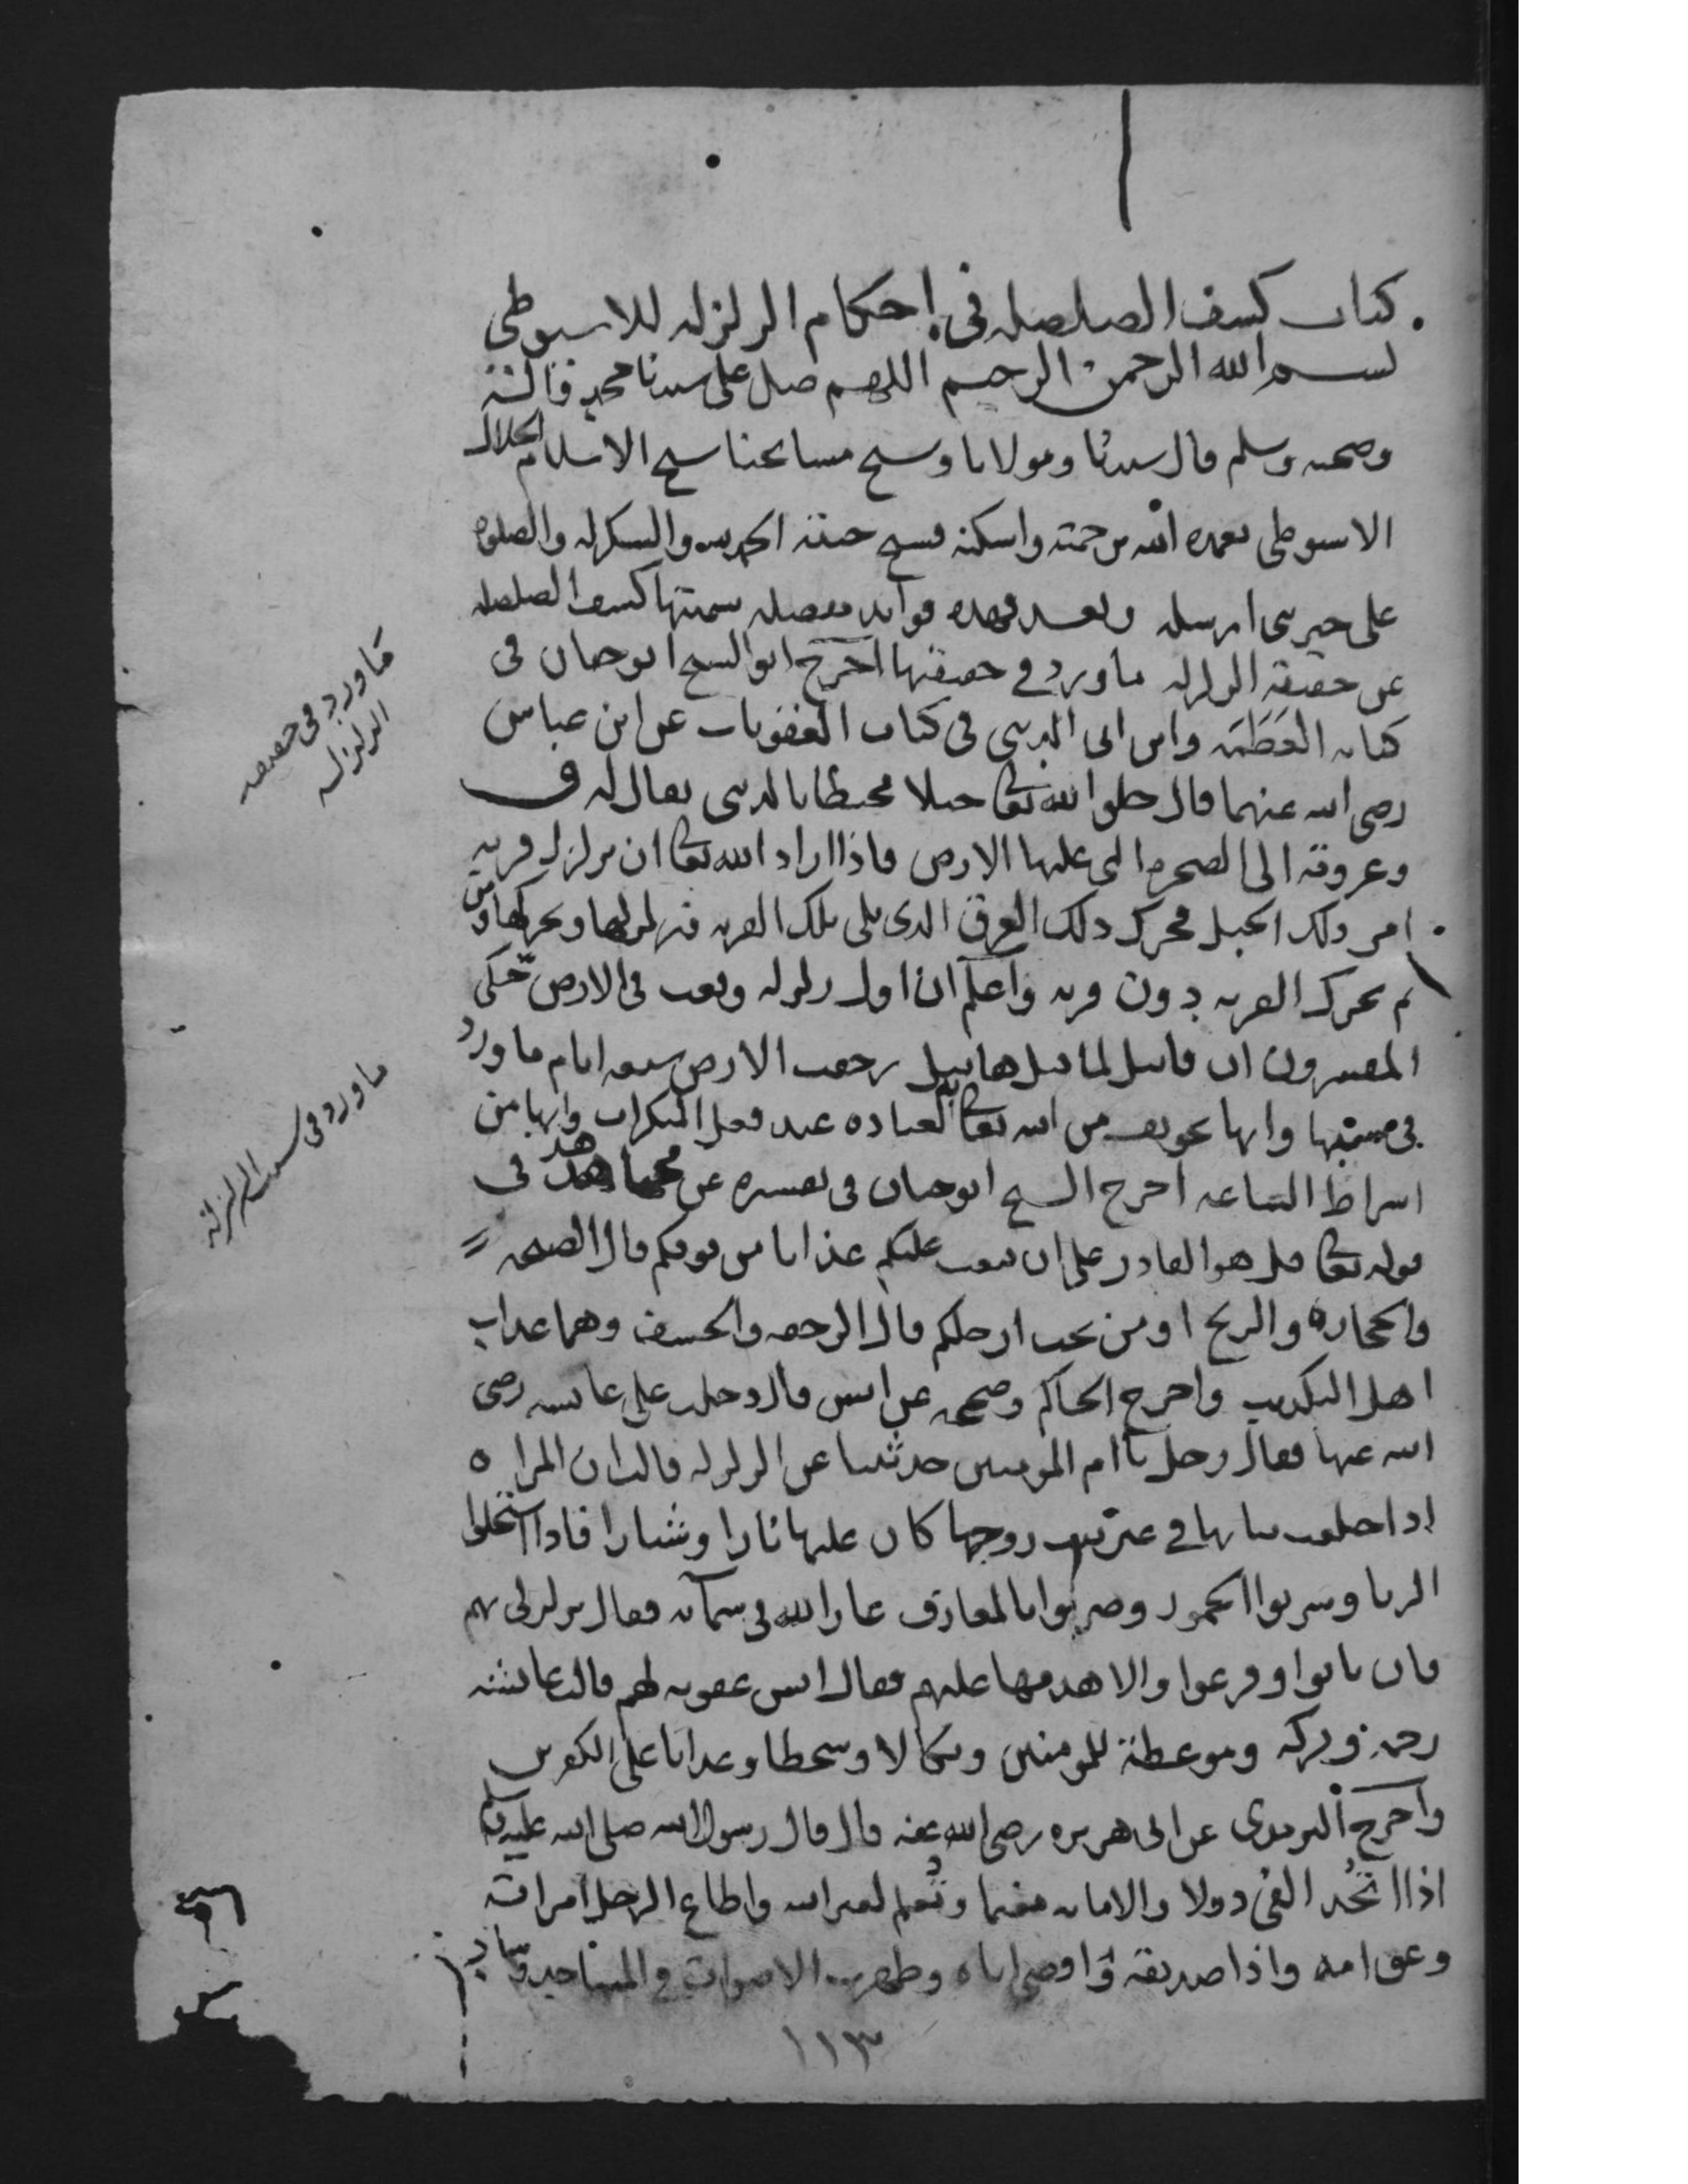 كتاب كشف الصلصلة في احكام الزلزلة للاسيوطي
بسم الله الرحمن الرحيم اللهم صل على سيدنا محمد واله
وصحبه وسلم قال سيدنا ومولانا وشيخ مشايخنا شيخ الاسلام الجلال
الاسيوطي تغمده الله برحمته واسكنه فسيح جنته الحمد لله والشكر له والصلوة
على خير نبي ارسله وبعد فهذه فوائد مفصله سميتها كشف الصلصله
عن حقيقة الزلزله ما ورد في حقيقتها اخرج ابو الشيخ ابو حيان في
كتاب العظمة وابن ابي الدنيى في كتاب العقوبات عن ابن عباس
رضى الله عنهما قال خلق الله تعالى جبلا محيطا بالدنيى يقال له ق
وعروقه الى الصخره التي عليها الارض فاذا اراد الله تعالى ان يزلزل قريه
امر ذلك الجبل فحرك ذلك العرق الذي يلى تلك القريه فيزلزلها ويحركها فمن
ثم تحرك القريه دون قريه واعلم ان اول زلزله وقعت في الارض حكى
المفسرون ان قابيل لما قتل هابيل رجفت الارض سبعه ايام ما ورد
في سببها وانها تخويف من الله تعالى لعباده عند فعل المنكرات وانها من
اشراط الساعه اخرج الشيخ ابو حيان في تفسيره عن مجاهد في
قوله تعالى قل هو القادر على ان يبعث عليكم عذابا من فوقكم قال الصيحه
والحجاره والريح او من تحت ارجلكم قال الرجفه والخسف وهما عذاب
اهل التكذيب واخرج الحاكم وصححه عن انس قال دخلت على عائشه رضى
الله عنها فقال رجل يا ام المومنين حدثينا عن الزلزله قالت ان المراه
اذا خلعت ثيابها في غير بيت زوجها كان عليها نارا وشنارا فاذا استحلوا
الزنا وشربوا الخمور وضربوا بالمعازف غار الله في سمائه فقال تزلزلي بهم
فان تابوا وفزعوا والا هدمها عليهم فقال انس عقوبه لهم قالت عائشه
رحمة وبركه وموعظة للمومنين ونكالا وسخطا وعذابا على الكفرين
واخرج الترمذي عن ابي هريره رضى الله عنه قال قال رسول الله صلى الله عليه وسلم
اذا اتخذ الفئ دولا والامانه مغنما وتُعلم لغير الله واطاع الرجل امراته
وعق امه واذا صديقه واقصى اباه وظهرت الاصوات في المساجد وساد
ما ورد في حقيقه
الزلزله
ما ورد في سبب الزلزلة
١١٣